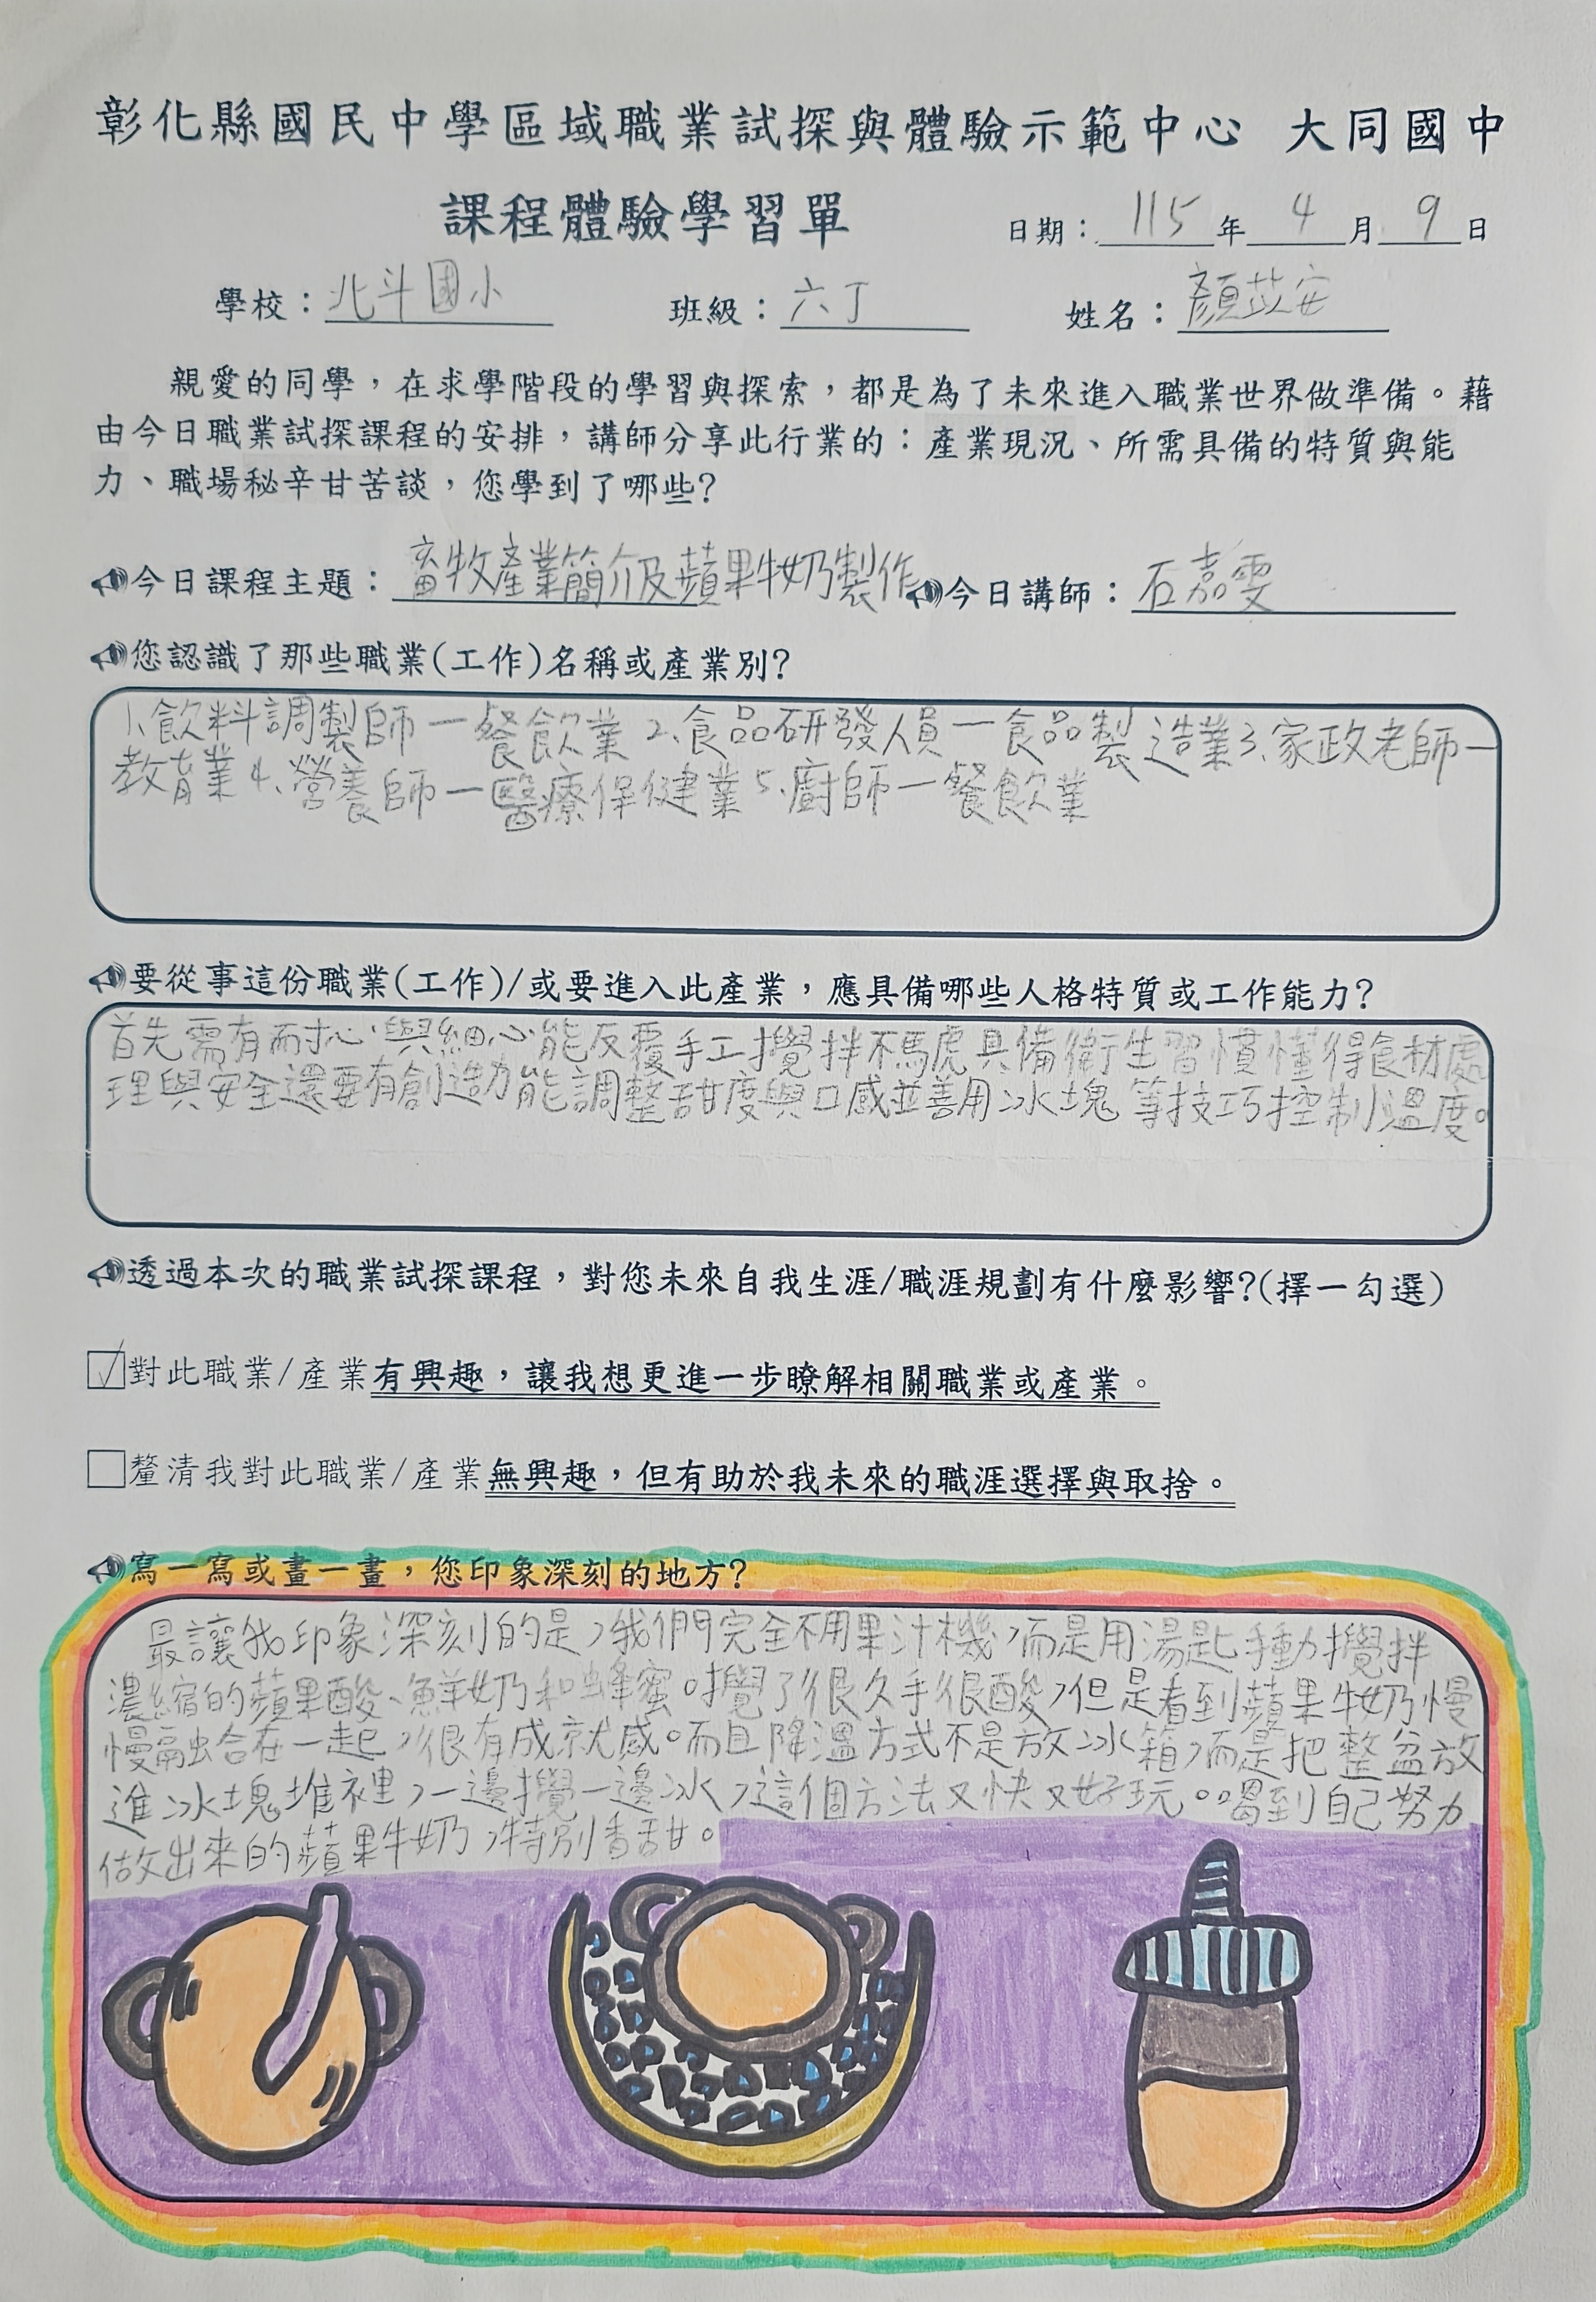 彰化縣國民中學區域職業試探與體驗示範中心 大同國中
課程體驗學習單 日期：115年4月9日
學校：北斗國小 班級：六丁 姓名：顏苡安
親愛的同學，在求學階段的學習與探索，都是為了未來進入職業世界做準備。藉
由今日職業試探課程的安排，講師分享此行業的：產業現況、所需具備的特質與能
力、職場秘辛甘苦談，您學到了哪些?
今日課程主題：畜牧產業簡介及蘋果牛奶製作 今日講師：石嘉雯
您認識了那些職業(工作)名稱或產業別?
1、飲料調製師一餐飲業 2、食品研發人員一食品製造業3、家政老師一
教育業4、營養師一醫療保健業5、廚師一餐飲業
要從事這份職業(工作)/或要進入此產業，應具備哪些人格特質或工作能力?
首先需有耐心與細心能反覆手工攪拌不馬虎具備衛生習慣懂得食材處
理與安全還要有創造力能調整甜度與口感並善用冰塊等技巧控制溫度。
透過本次的職業試探課程，對您未來自我生涯/職涯規劃有什麼影響?(擇一勾選)
☑對此職業/產業有興趣，讓我想更進一步瞭解相關職業或產業。
☐釐清我對此職業/產業無興趣，但有助於我未來的職涯選擇與取捨。
寫一寫或畫一畫，您印象深刻的地方?
最讓我印象深刻的是，我們完全不用果汁機，而是用湯匙手動攪拌
濃縮的蘋果酸、鮮奶和蜂蜜。攪了很久手很酸，但是看到蘋果牛奶慢
慢融合在一起，很有成就感。而且降溫方式不是放冰箱，而是把整盆放
進冰塊堆裡，一邊攪一邊冰，這個方法又快又好玩。喝到自己努力
做出來的蘋果牛奶，特別香甜。